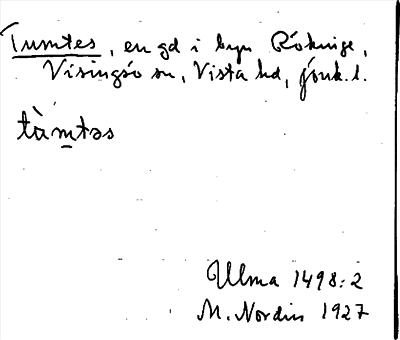 Tumtes, en gd i byn Rökinge,
Visingsö sn, Vista hd, Jönk. l.
tàm̲təs
Ulma 1498:2
M. Nordin 1927